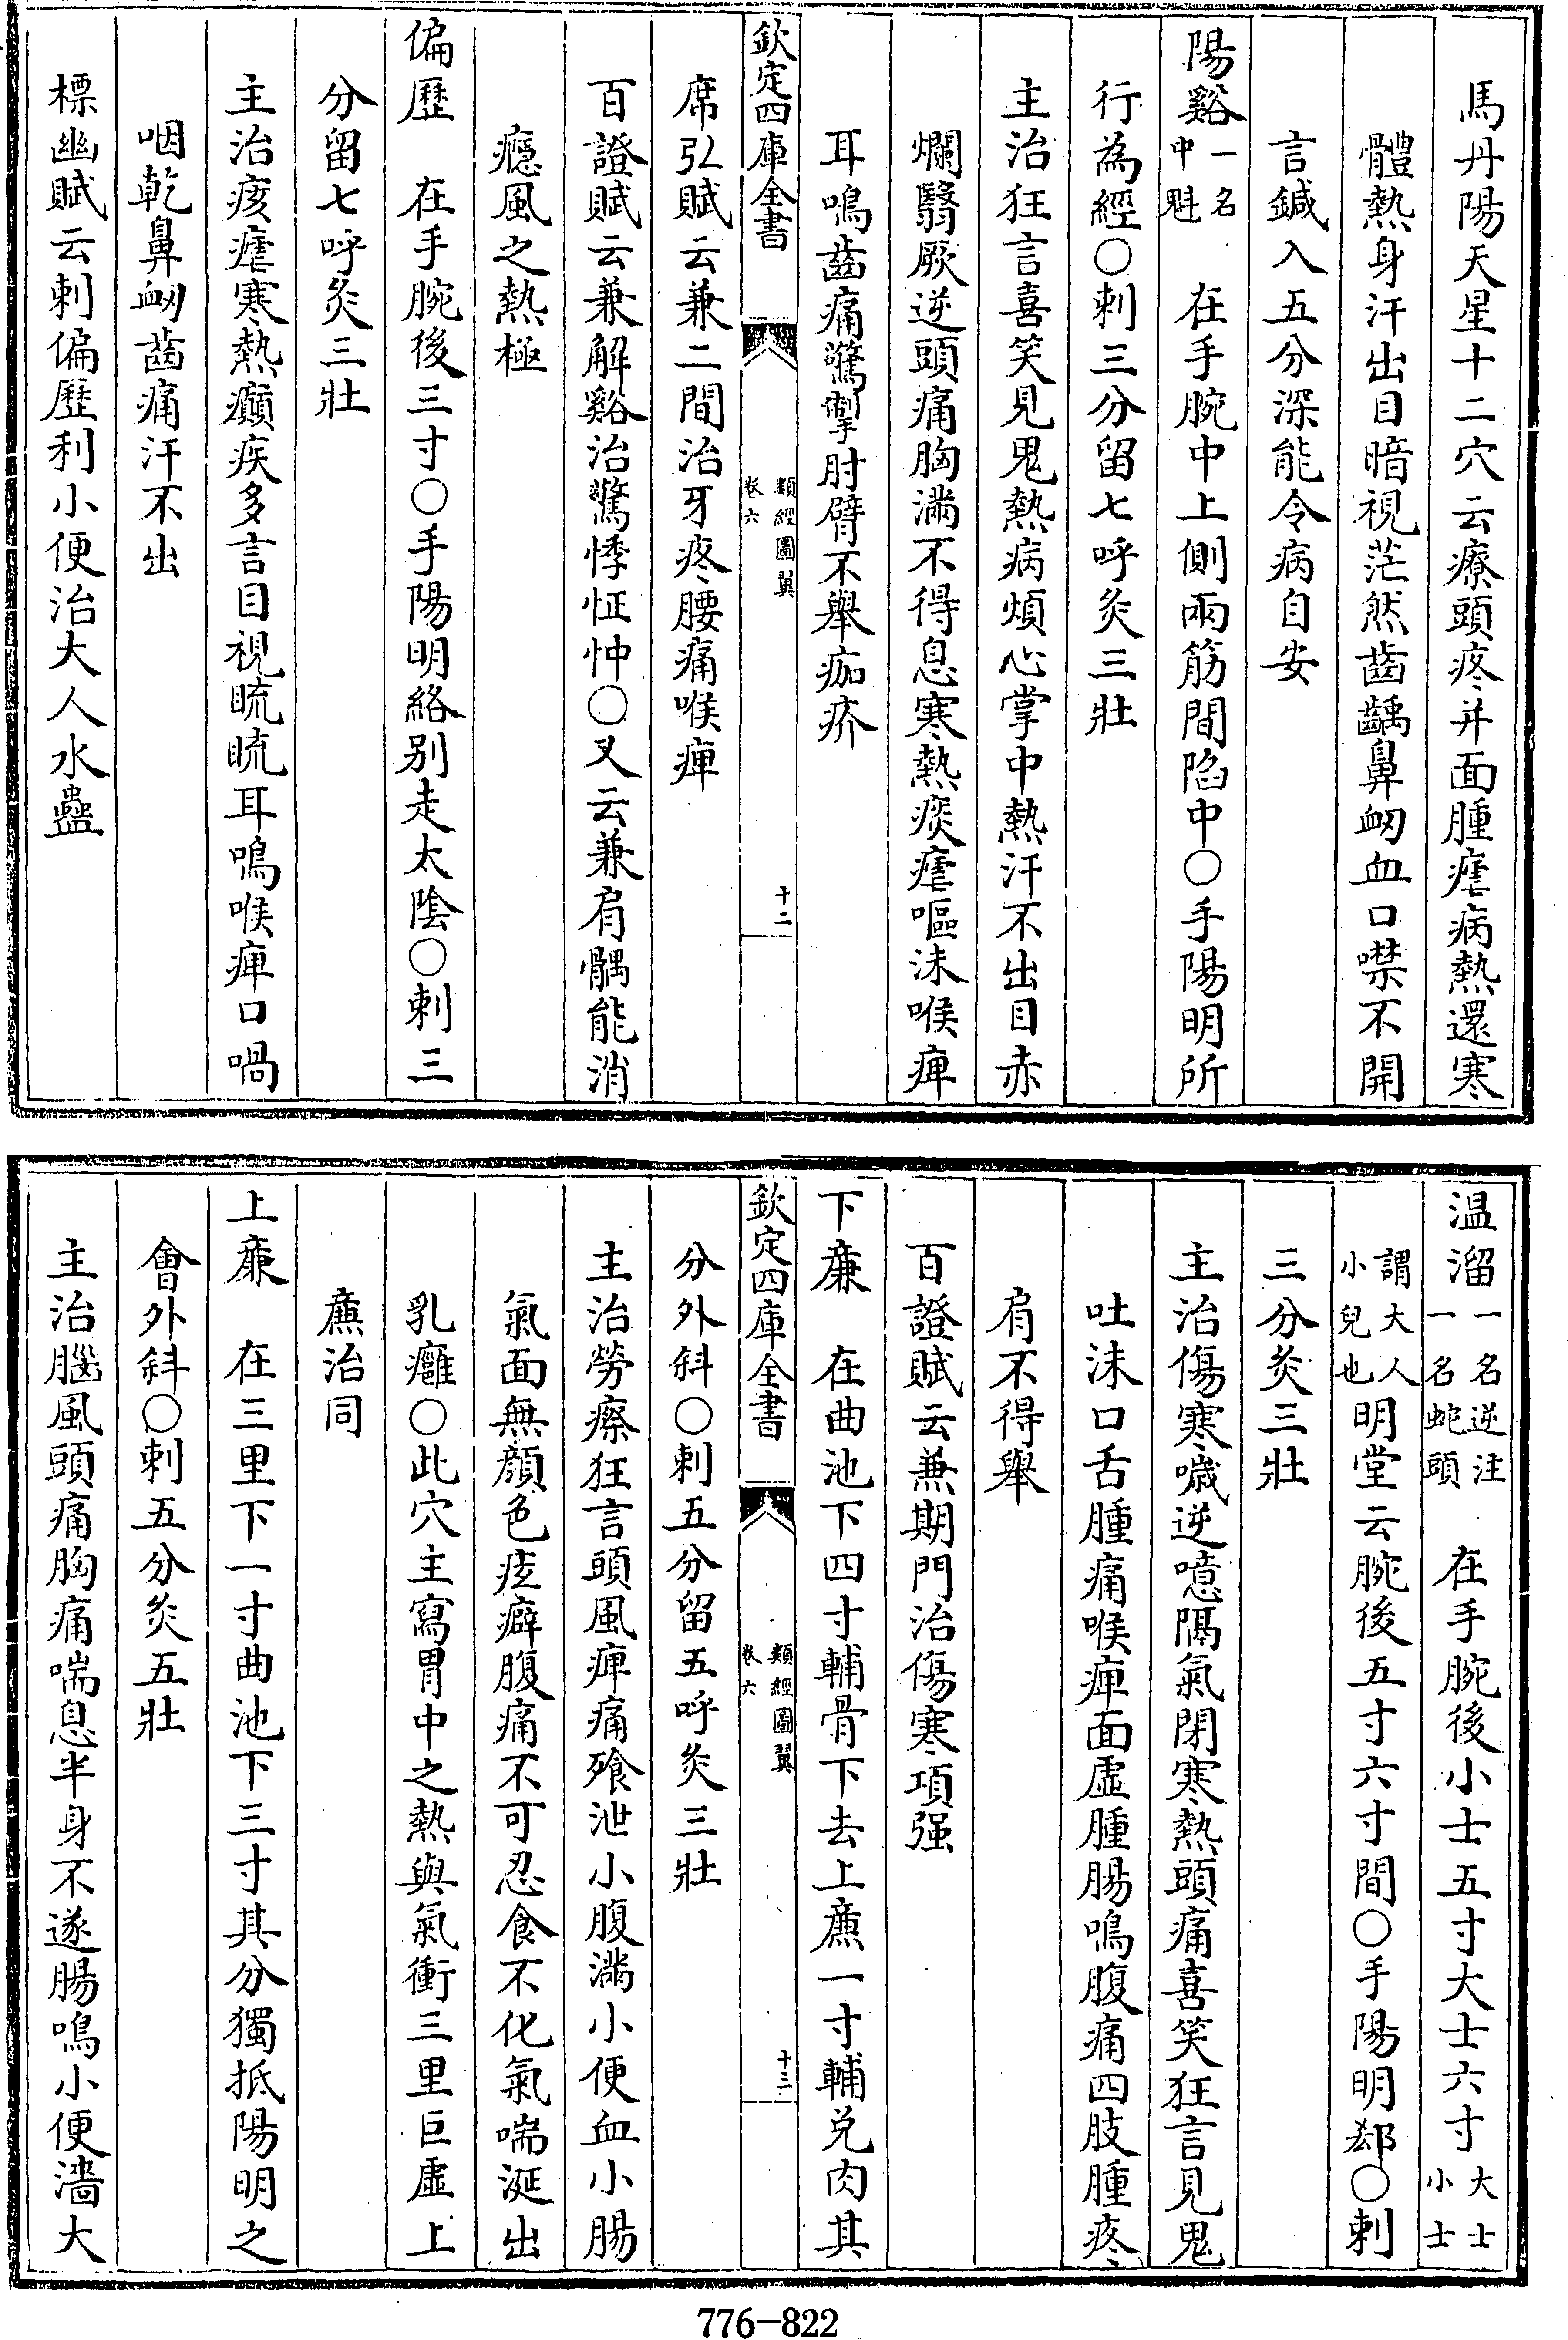 馬丹陽天星十二穴云療頭疼并面腫瘧病熱還寒
體熱身汗出目暗視茫然齒齲鼻衂血口噤不開
言鍼入五分深能令病自安
陽谿一名中魁　在手腕中上側兩筋間陷中○手陽明所
行為經○刺三分留七呼灸三壯
主治狂言喜笑見鬼熱病煩心掌中熱汗不出目赤
爛翳厥逆頭痛胸滿不得息寒熱痎瘧嘔沫喉痺
耳鳴齒痛驚掣肘臂不舉痂疥
欽定四庫全書　類經圖翼卷六　十二
席弘賦云兼二間治牙疼腰痛喉痺
百證賦云兼解谿治驚悸怔忡○又云兼肩髃能消
癮風之熱極
偏歷　在手腕後三寸○手陽明絡别走太陰○刺三
分留七呼灸三壯
主治痎瘧寒熱癲疾多言目視䀮䀮耳鳴喉痺口喎
咽乾鼻衂齒痛汗不出
標幽賦云刺偏歷利小便治大人水蠱
温溜一名逆注一名蛇頭　在手腕後小士五寸大士六寸大士小士
謂大人小兒也明堂云腕後五寸六寸間○手陽明郄○刺
三分灸三壯
主治傷寒噦逆噫隔氣閉寒熱頭痛喜笑狂言見鬼
吐沫口舌腫痛喉痺面虚腫腸鳴腹痛四肢腫疼
肩不得舉
百證賦云兼期門治傷寒項强
下廉　在曲池下四寸輔骨下去上廉一寸輔兌肉其
欽定四庫全書　類經圖翼卷六　十三
分外斜○刺五分留五呼灸三壯
主治勞瘵狂言頭風痺痛飱泄小腹滿小便血小腸
氣面無顔色痃癖腹痛不可忍食不化氣喘涎出
乳癰○此穴主寫胃中之熱與氣衝三里巨虚上
廉治同
上廉　在三里下一寸曲池下三寸其分獨抵陽明之
會外斜○刺五分灸五壯
主治腦風頭痛胸痛喘息半身不遂腸鳴小便濇大
776—822